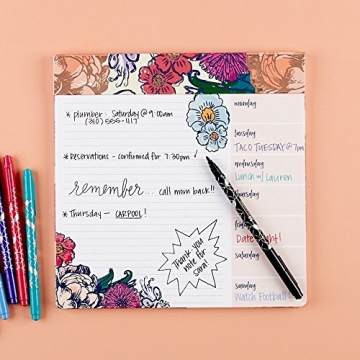 * plumber: Saturday @ 9:00am
(310) 555-1117
* Reservations - confirmed for 7:30pm!
remember... call mom back!!
* Thursday - CARPOOL!
Thank you
note for
sara!
monday
tuesday
TACO TUESDAY @ 7pm
wednesday
Lunch w/ Lauren
thursday
friday
Date night!
saturday
sunday
Watch Football